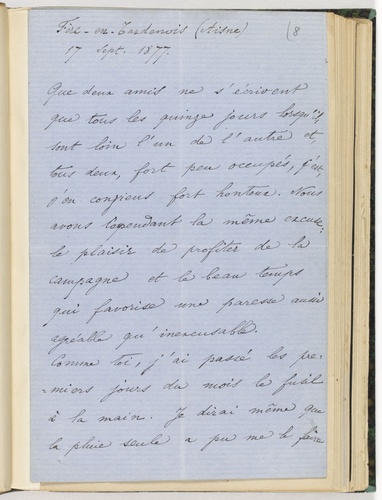 Fère-en-Tardenois (Aisne) 8
17 Sept. 1877.
Que deux amis ne s'écrivent
que tous les quinze jours lorsqu'ils
sont loin l'un de l'autre et,
tous deux, fort peu occupés, c'est,
j'en conviens fort honteux. Nous
avons cependant la même excuse:
le plaisir de profiter de la
campagne et le beau temps
qui favorise une paresse aussi
agréable qu'inexcusable.
Comme toi, j'ai passé les pre-
-miers jours du mois le fusil
à la main. Je dirai même que
la pluie seule a pu me le faire